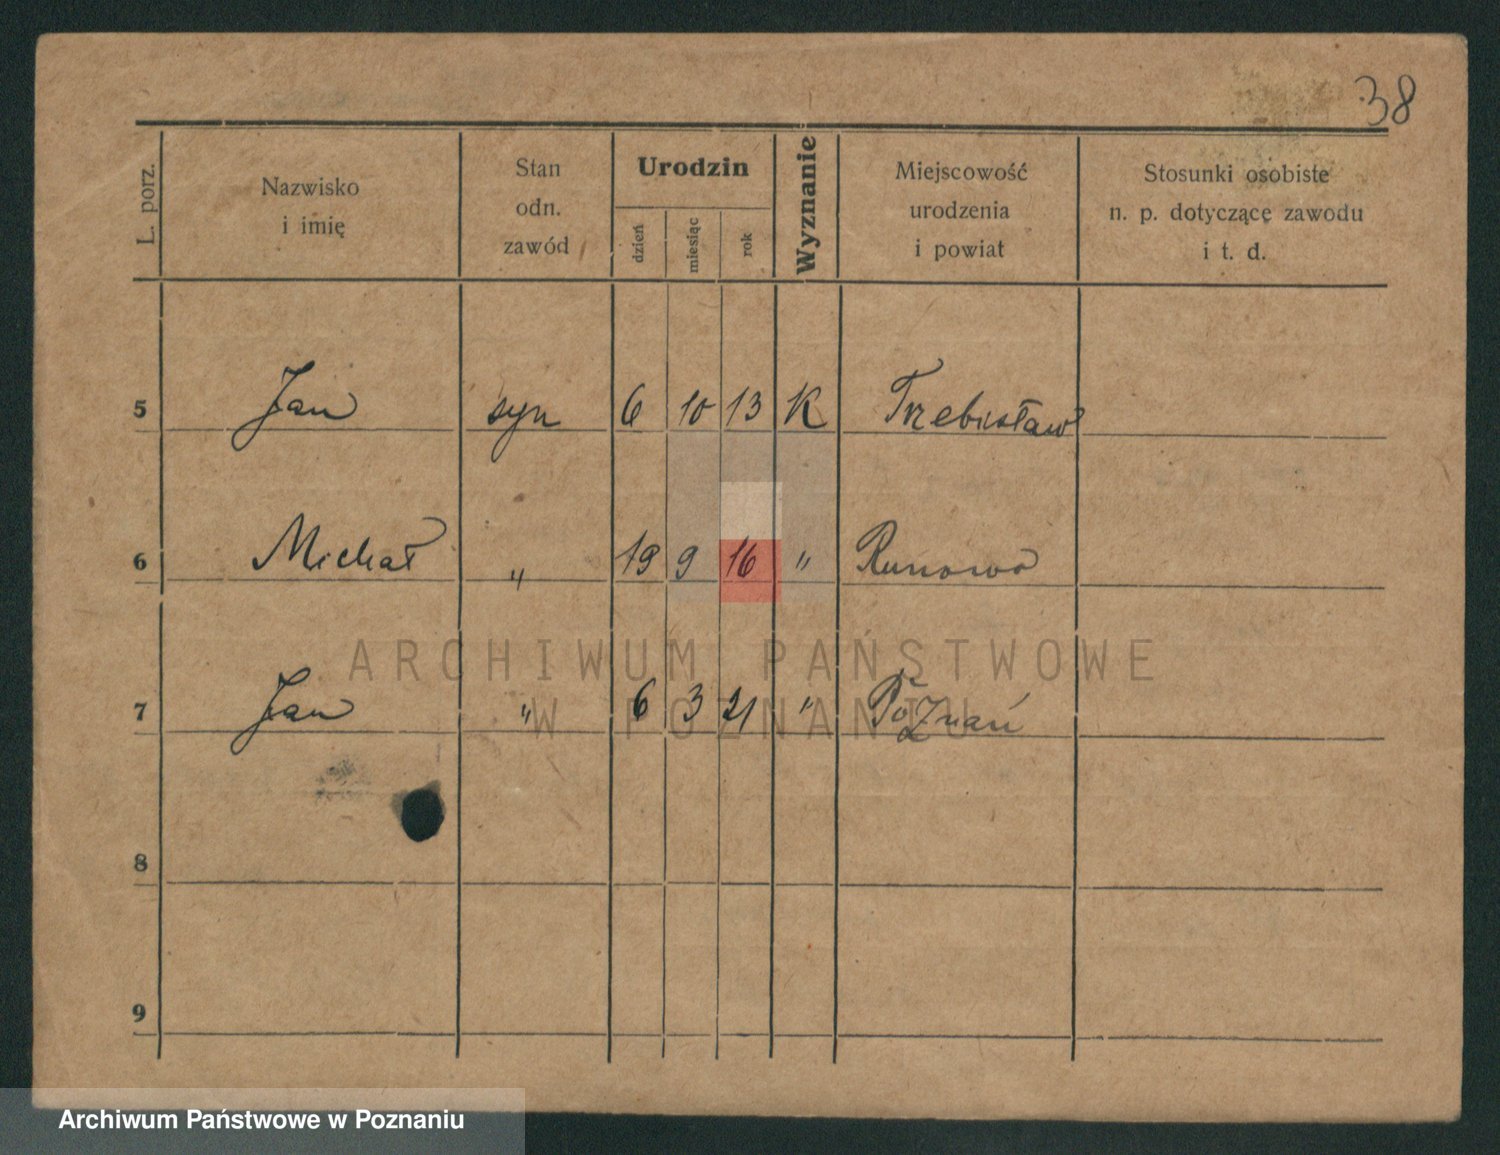 38
L. porz.
Nazwisko
i imię
Stan
odn.
zawód
Urodzin
dzień
miesiąc
rok
Wyznanie
Miejscowość
urodzenia
i powiat
Stosunki osobiste
n. p. dotyczące zawodu
i t. d.
5 Jan syn 6 10 13 K Trzebisław
6 Michał " 19 9 16 " Runowo
ARCHIWUM PAŃSTWOWE
W POZNANIU
7 Jan " 6 3 21 " Poznań
8
9
Archiwum Państwowe w Poznaniu